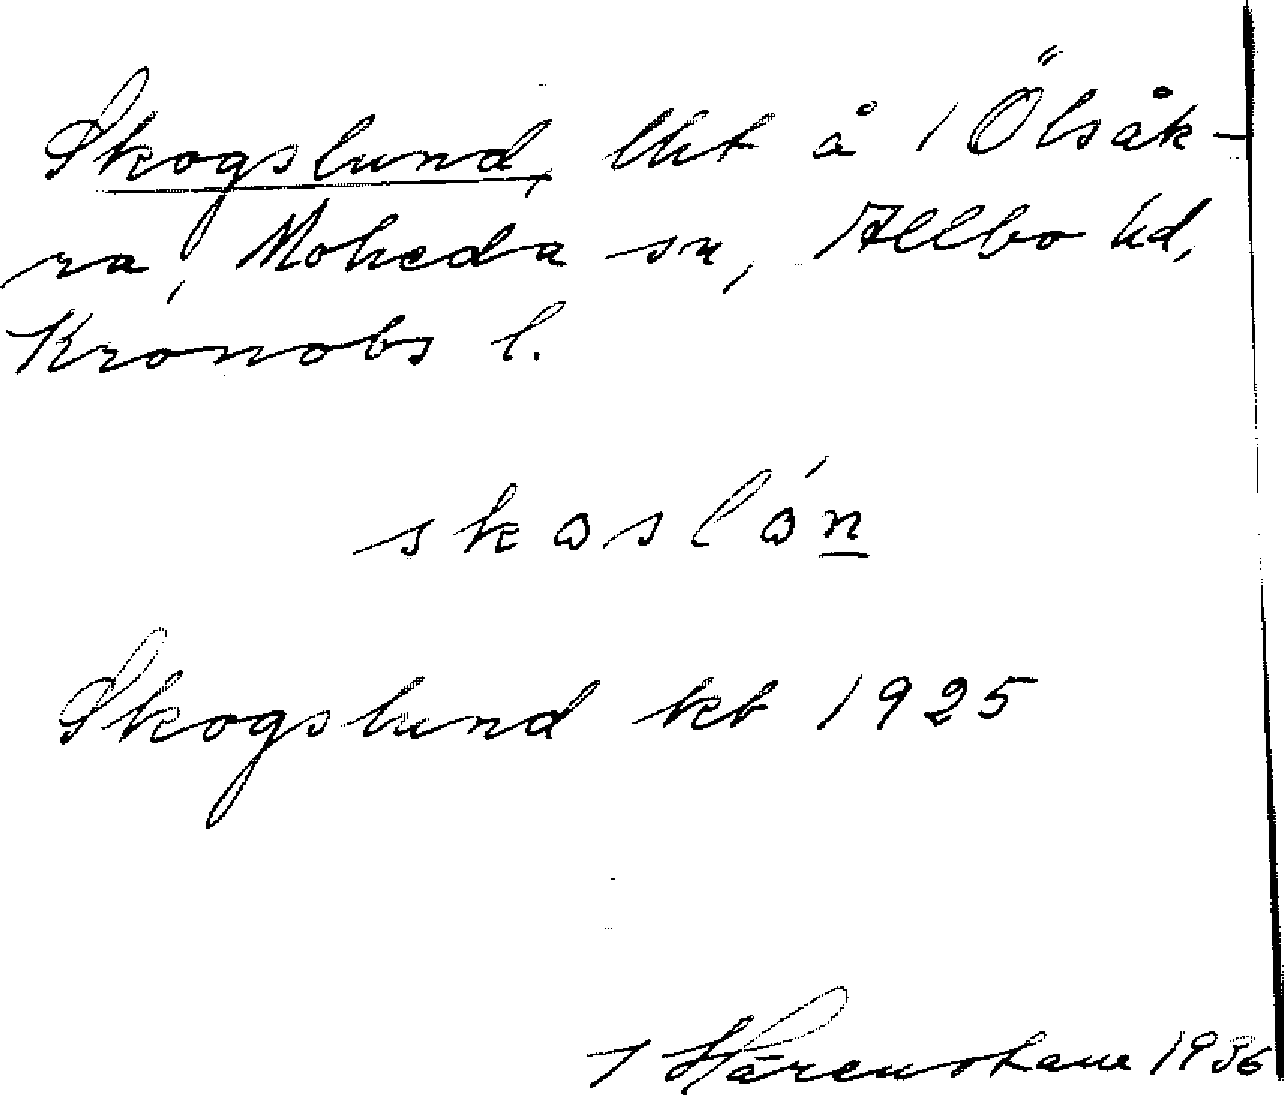 Skogslund, lht å 1 Ölsåk-
ra, Moheda sn, Allbo hd,
Kronobs l.
skoslón
Skogslund kb 1925
1936